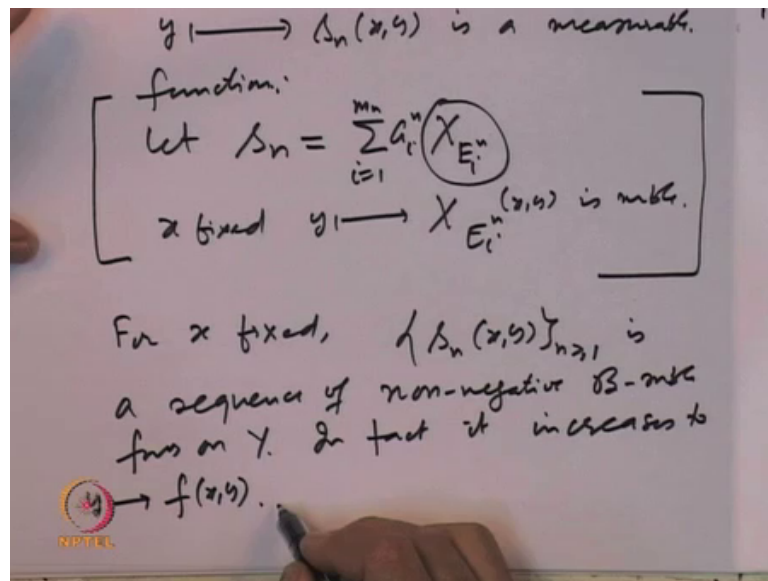 y ⟼ s_n(x,y) is a measurable.
function.
Let s_n = ∑_{i=1}^{m_n} a_i^n χ_{E_i^n}
x fixed y ⟼ χ_{E_i^n}(x,y) is mble.
For x fixed, {s_n(x,y)}_{n≥1} is
a sequence of non-negative B-mble
funs on Y. In fact it increases to
y → f(x,y).
NPTEL